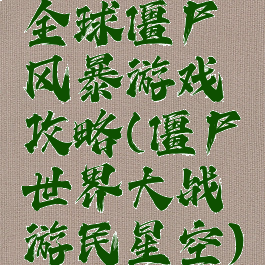 全球僵尸
风暴游戏
攻略(僵尸
世界大战
游民星空)